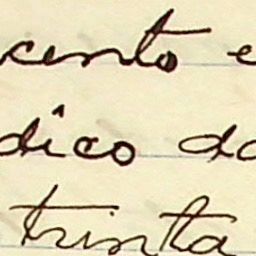 cento e
dico do
trinta